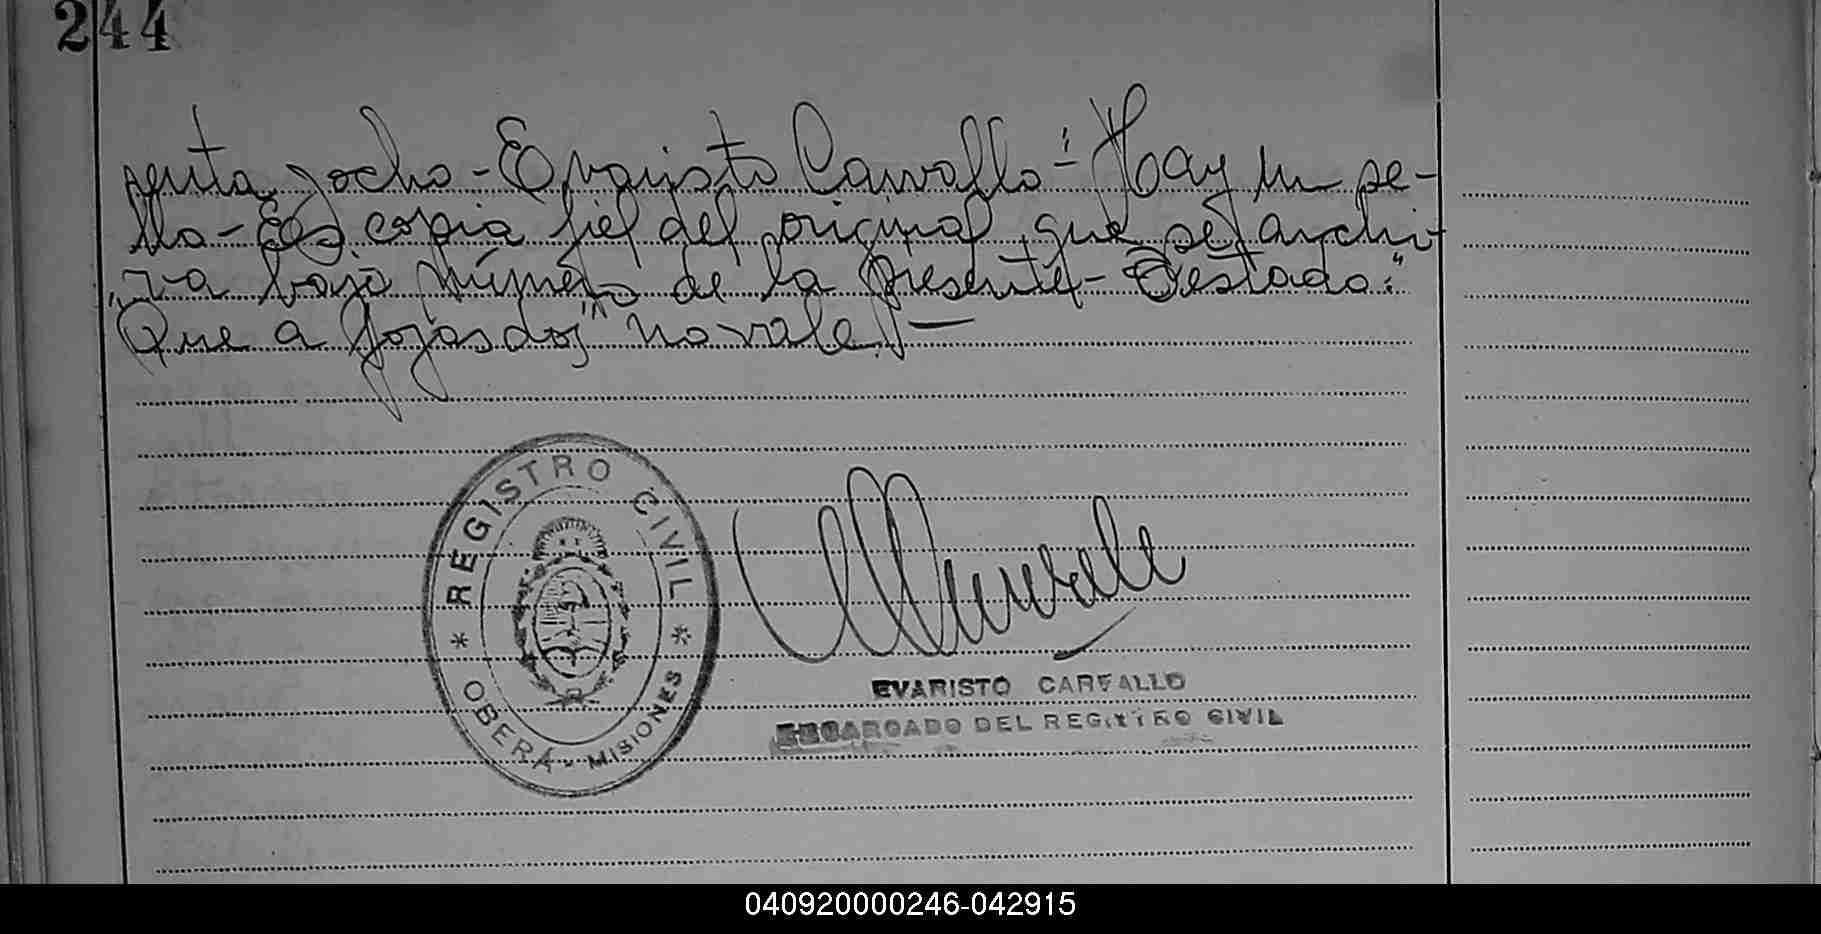 244
senta y ocho - Evaristo Carvallo - "Hay un se-
llo - Es copia fiel del original que se archi-
va bajo número de la presente - Testado: "
"Que a fojas dos" no vale. —
REGISTRO CIVIL
* OBERÁ - MISIONES *
EVARISTO CARVALLO
ENCARGADO DEL REGISTRO CIVIL
040920000246-042915